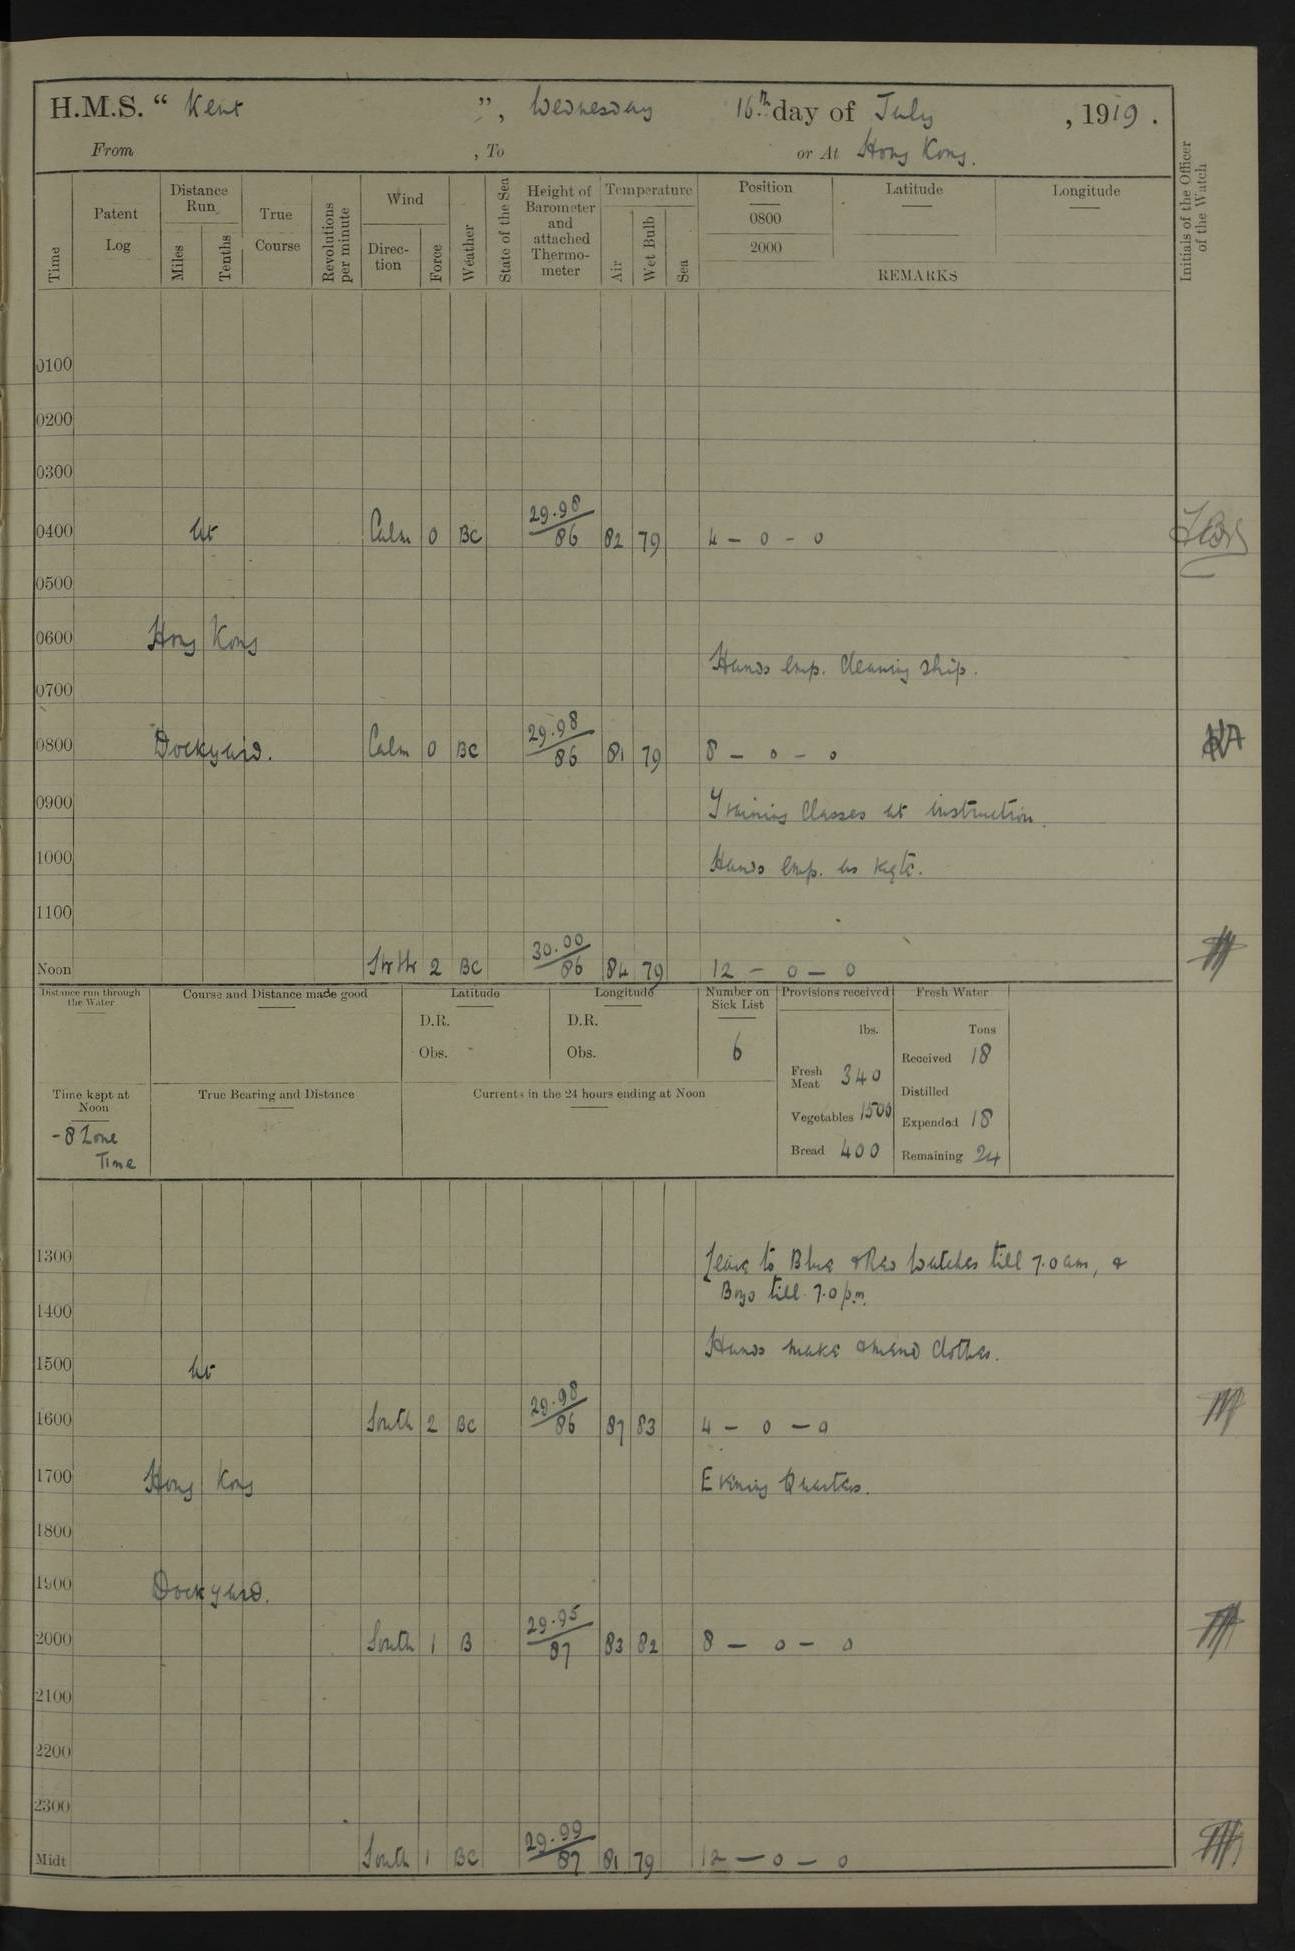 H.M.S. “ Kent ”, Wednesday 16th day of July , 1919 .
From , To or At Hong Kong.
Time
Patent Log
Distance Run
Miles
Tenths
True Course
Revolutions per minute
Wind
Direction
Force
Weather
State of the Sea
Height of Barometer and attached Thermometer
Temperature
Air
Wet Bulb
Sea
Position
0800
2000
Latitude
Longitude
REMARKS
Initials of the Officer of the Watch
0100
0200
0300
0400 At Calm 0 BC 29.98/86 82 79 4 – 0 – 0
0500
0600 Hong Kong
Hands emp. cleaning ship.
0700
0800 Dockyard. Calm 0 BC 29.98/86 81 79 8 – 0 – 0
0900 Training Classes at instruction.
1000 Hands emp. as reqte.
1100
Noon 2 BC 30.00/86 84 79 12 – 0 – 0
Distance run through the Water
Course and Distance made good
Latitude
D.R.
Obs.
Longitude
D.R.
Obs.
Number on Sick List
6
Provisions received
lbs.
Fresh Meat 340
Vegetables 1500
Bread 400
Fresh Water
Tons
Received 18
Distilled
Expended 18
Remaining 24
Time kept at Noon
-8 Zone Time
True Bearing and Distance
Currents in the 24 hours ending at Noon
1300 Leave to Blue & Red Watches till 7.0 am, &
Boys till 7.0 p.m.
1400
Hands make & mend clothes.
1500 At
1600 South 2 BC 29.98/86 87 83 4 – 0 – 0
1700 Hong Kong Evening Quarters.
1800
1900 Dockyard.
2000 South 1 B 29.95/87 83 82 8 – 0 – 0
2100
2200
2300
Midt South 1 BC 29.99/87 81 79 12 – 0 – 0